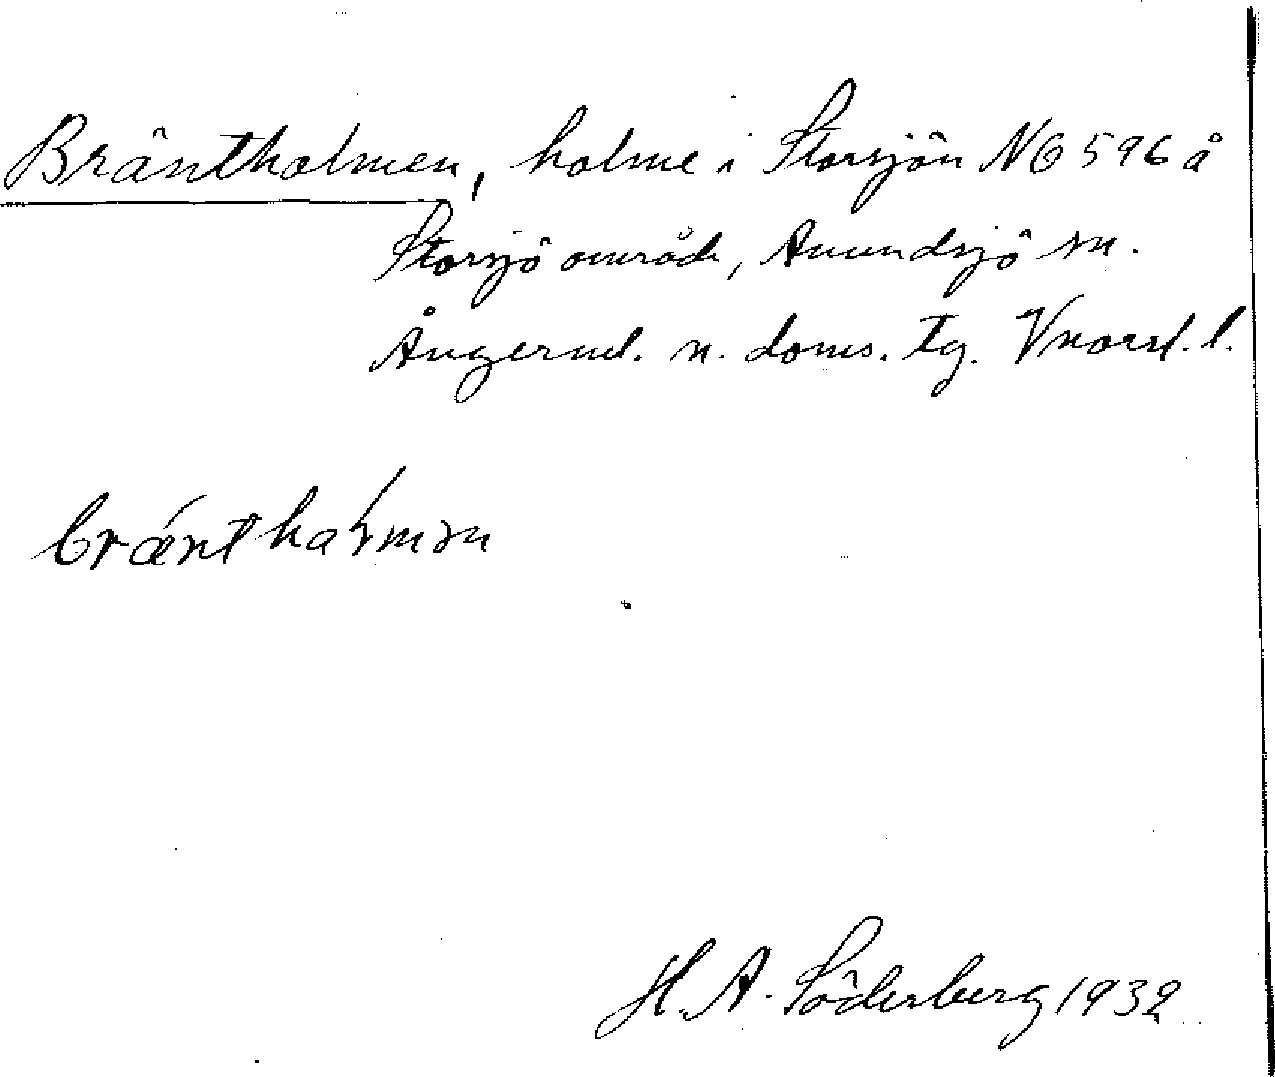 Bräntholmen, holme i Storsjön N6 596 å
Storsjö område, Anundsjö sn.
Ångerml. n. doms. tg. Vnorrl. l.
brǽnthaɫmən
H. A. Söderberg 1932